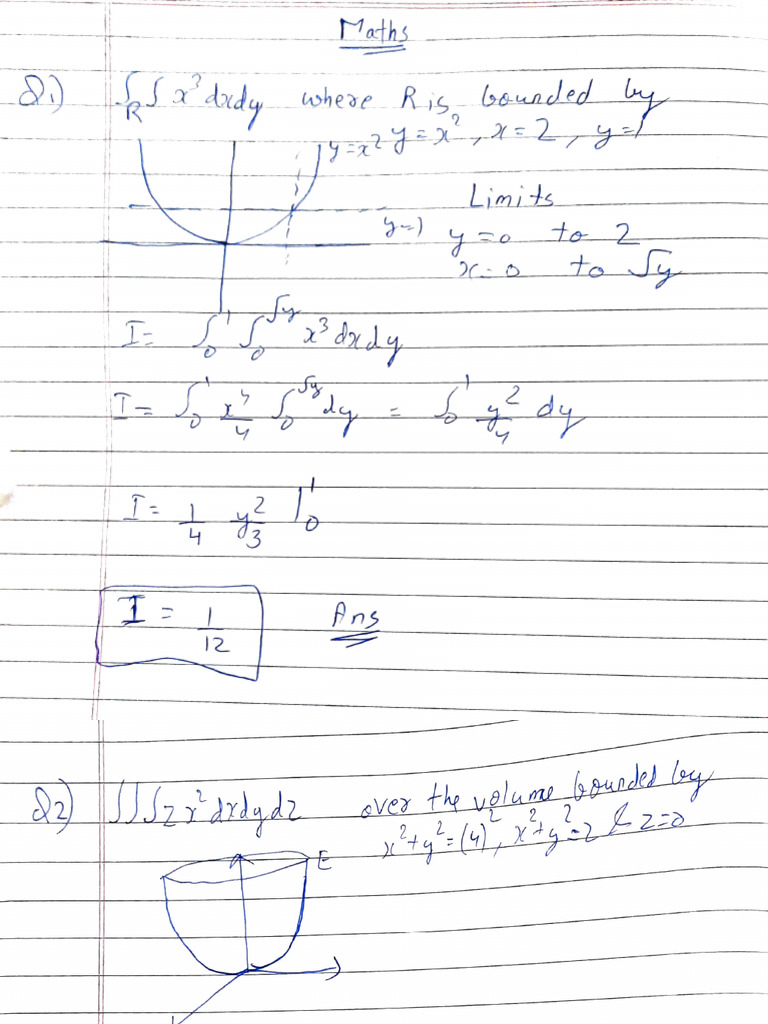 Maths
Q1) ∫∫_R x³ dxdy where R is bounded by
y=x² y=x², x=2, y=1
Limits
y=1 y=0 to 2
x=0 to √y
I= ∫₀¹ ∫₀^√y x³ dx dy
I= ∫₀¹ x⁴/4 ∫₀^√y dy = ∫₀¹ y²/4 dy
I= 1/4 y²/3 |₀¹
I = 1/12 Ans
Q2) ∫∫∫ z x² dxdydz over the volume bounded by
x²+y²=(4)², x²+y²=2 & z=0
E